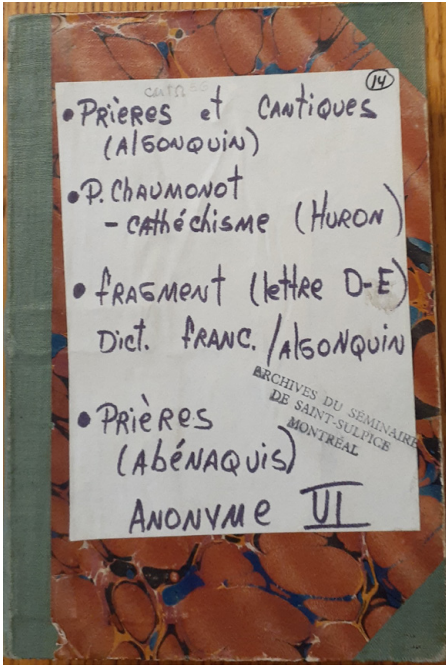 14
• PRièRES et CANTiQUES
(AlGONQUiN)
• P. CHAUMONOT
- CATHéchiSME (HURON)
• fRAGMENT (lettre D-E)
Dict. fRANC. / AlGONQUiN
ARCHIVES DU SÉMINAIRE
DE SAINT-SULPICE
MONTRÉAL
• PRièRES
(AbéNAQUiS)
ANONYMe VI